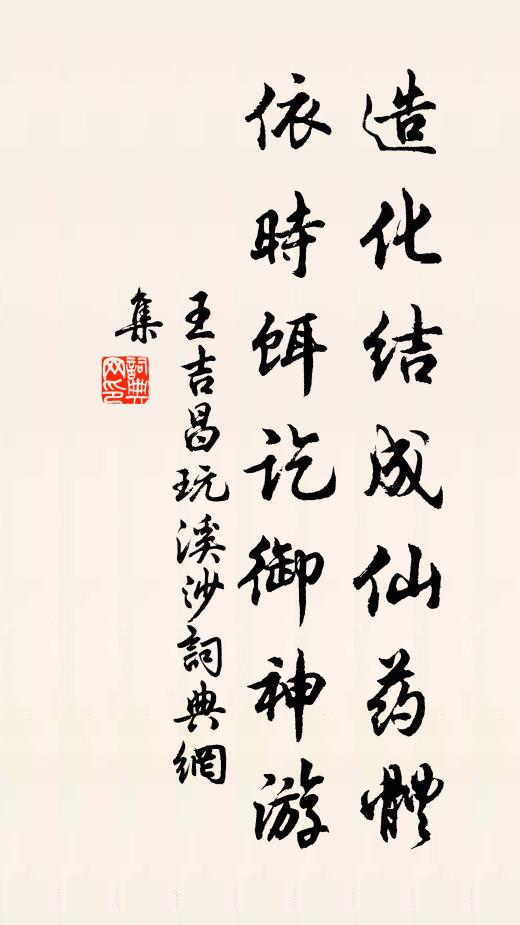 造化结成仙药體
依時餌讫御神游
王吉昌玩溪沙詞典網
集
詞典
网印